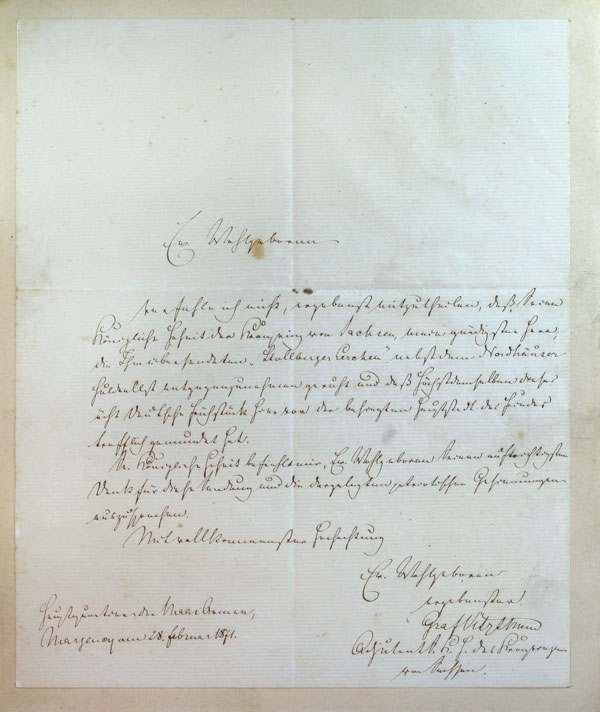 Ew. Wohlgeboren
verfehle ich nicht, ergebenst mitzutheilen, daß Seine
Königliche Hoheit der Kronprinz von Sachsen, mein gnädigster Herr,
die Ihm übersendeten „Stollberger Lerchen" nebst dem Nordhäuser
huldvollst entgegenzunehmen geruht und daß Höchstdemselben dieses
ächt deutsche Frühstück hier vor der besiegten Hauptstadt des Feindes
trefflich gemundet hat.
Se. Königliche Hoheit befiehlt mir, Ew. Wohlgeboren Seinen aufrichtigsten
Dank für diese Sendung und die dargelegten patriotischen Gesinnungen
auszusprechen.
Mit vollkommenster Hochachtung
Ew. Wohlgeboren
ergebenster
Graf Vitzthum
Adjutant S. K. H. des Kronprinzen
von Sachsen.
Hauptquartier der Maas Armee,
Margency am 28. Februar 1871.